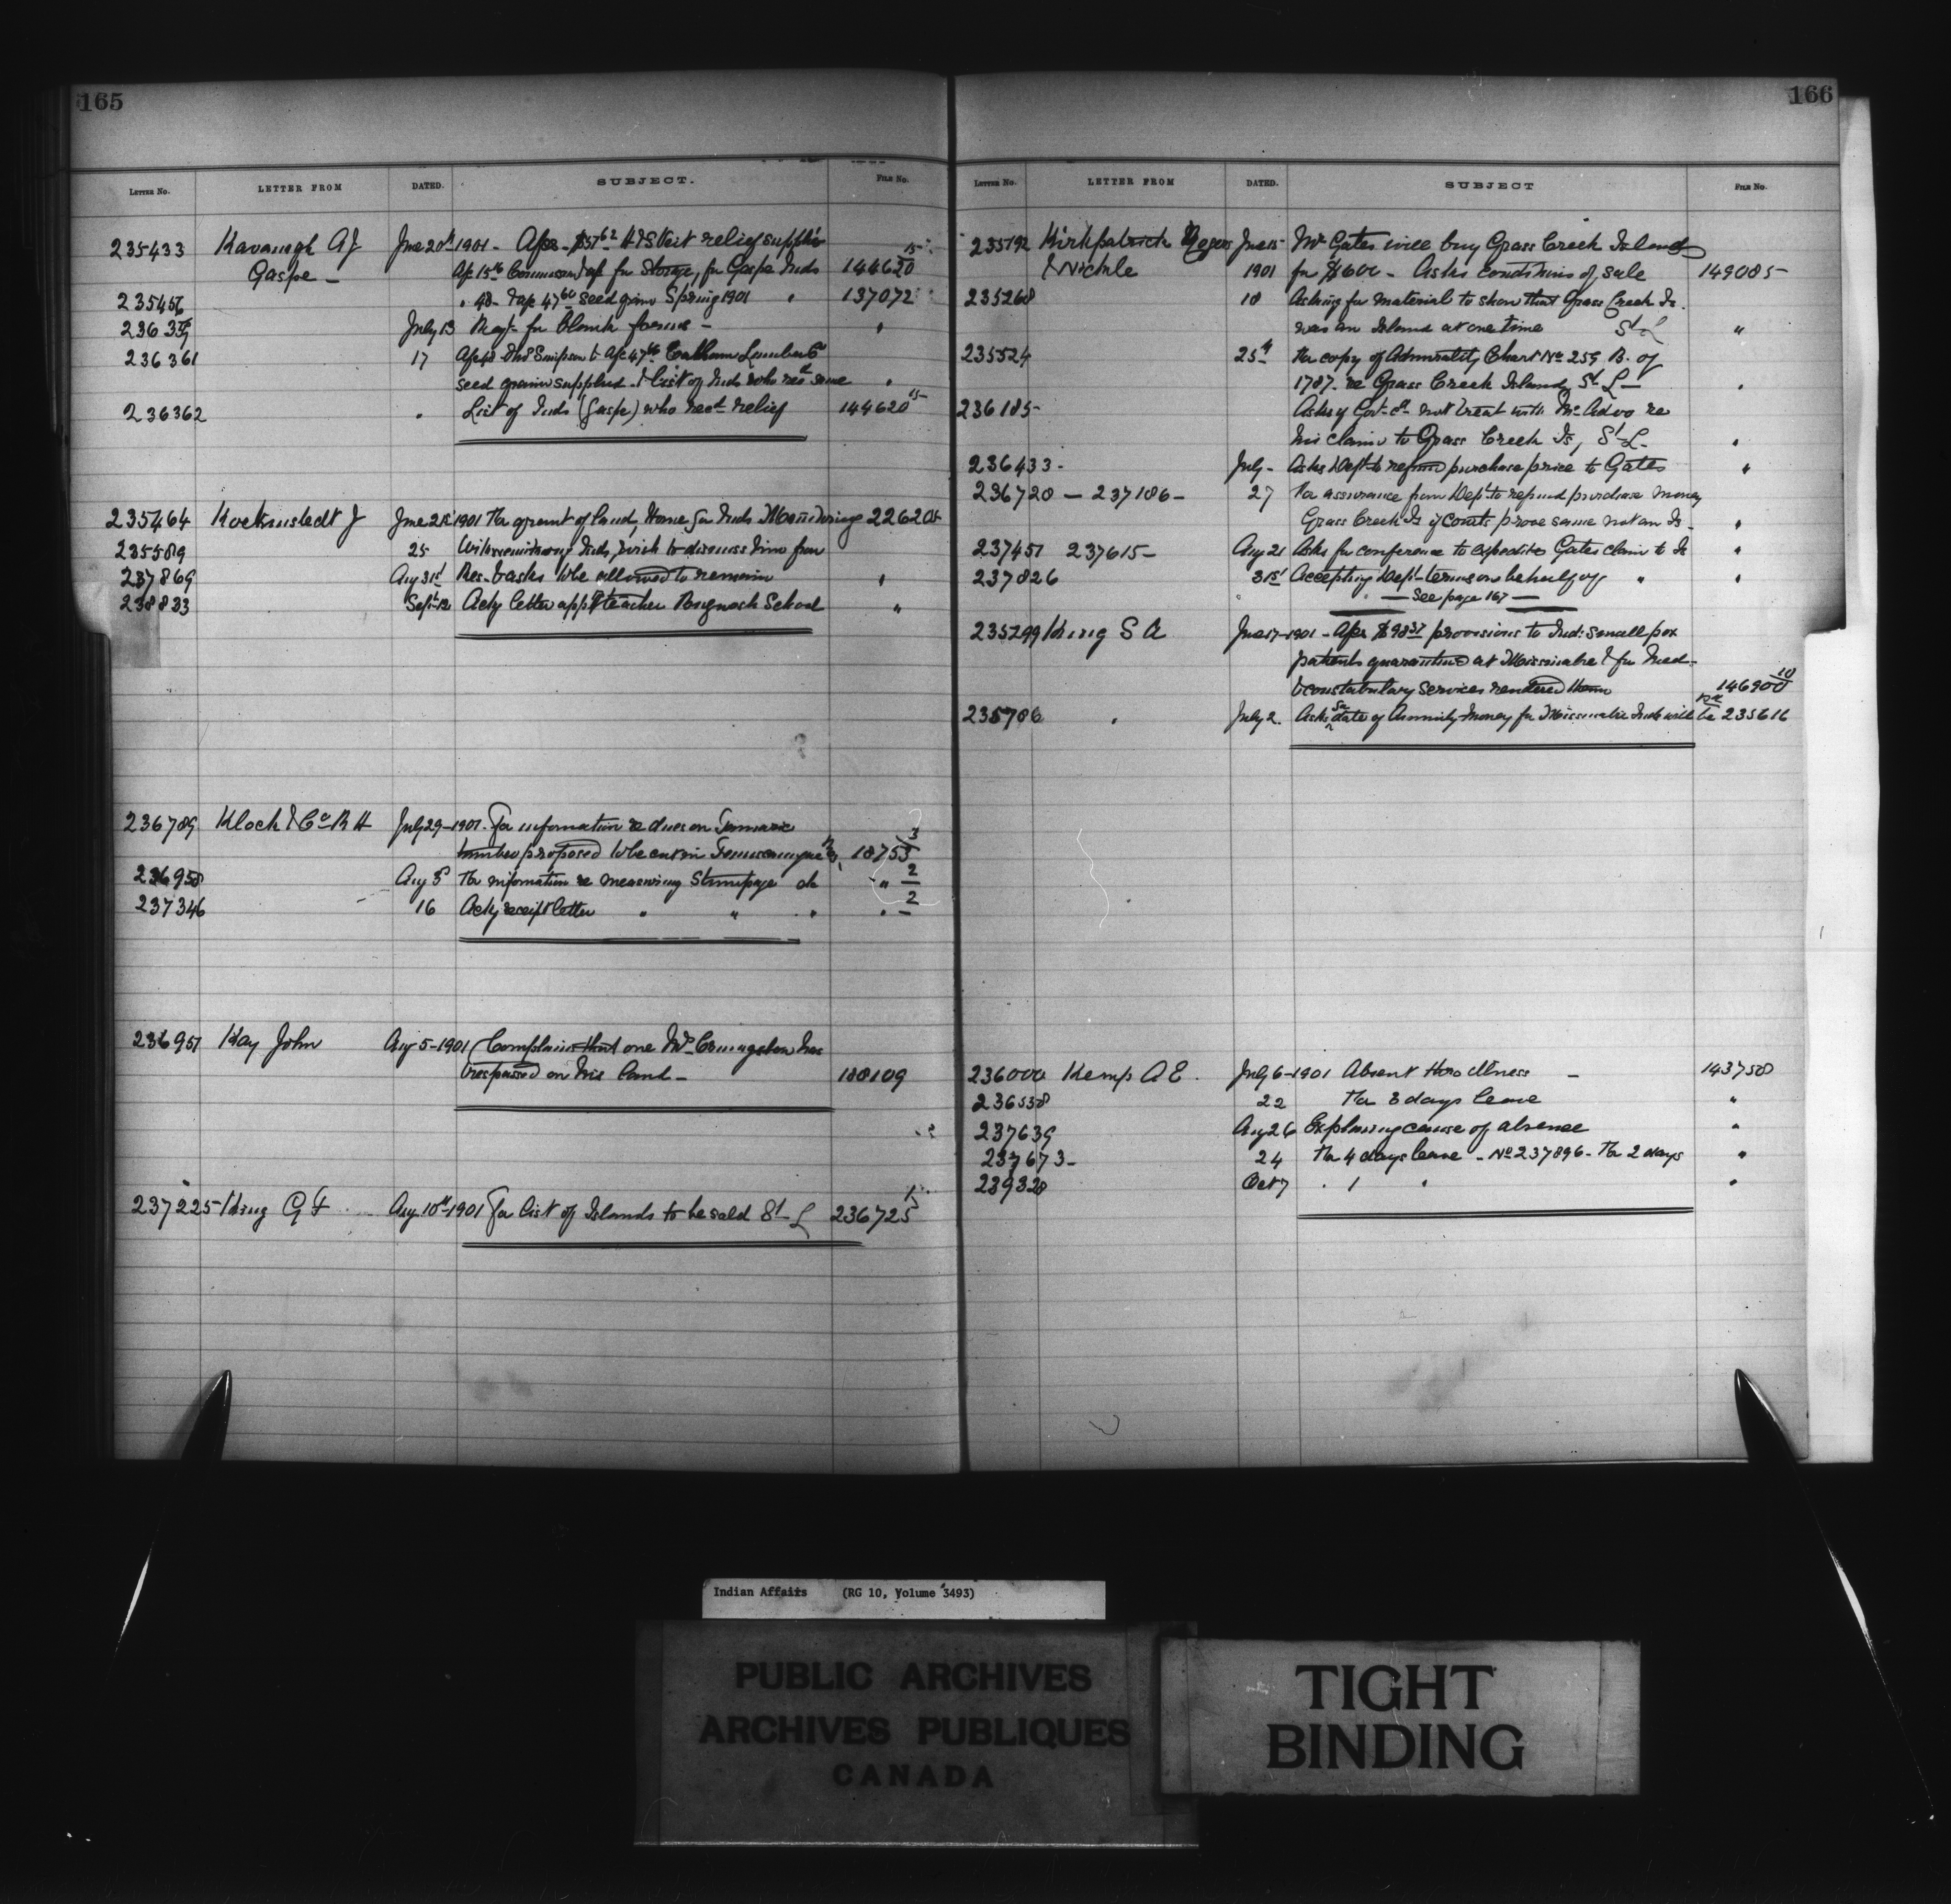 165
LETTER No. LETTER FROM DATED. SUBJECT. FILE No.
235433 Kavanagh A J June 20th 1901 - Afs - $51 62 H & S Veit relief supplies 15
Gaspe - Ap 15th for Storage, for Gaspe Inds 144620
235456 " 48 - 47 60 seed grain Spring 1901 " 137072
July 13 Reqt. for blank forms - "
236361 17 Simpson & Calhoun Lumber Co
seed grain supplied & list of Inds who recd same "
236362 " List of Inds (Gaspe) who recd relief 144620 15
235464 June 21st 1901 for grant of land, Home for Inds
235589 25 Inds, wish to dismiss him from
237869 Aug 31st Res. & asks to be allowed to remain "
238833 Sept 12 Ackg letter appt teacher School "
236789 Klock & Co R H July 29 - 1901. For information re dues on Tamarac
timber proposed to be cut on Res, 18753 3
236958 Aug 5 For information re measuring Stumpage do " 2
237346 16 Ackg receipt letter " " " " 2
236951 Kay John Aug 5 - 1901 Complains that one Mr. has
trespassed on his land - 188109
237225 King G F Aug 10th 1901 For list of Islands to be sold St. L 236725 1
166
LETTER No. LETTER FROM DATED. SUBJECT FILE No.
235192 Kirkpatrick Rogers June 15 Mr Gates will buy Grass Creek Island
& Nickle 1901 for $600 - Asks conditions of sale 149085
235268 18 Asking for material to show that Grass Creek Is.
was an Island at one time St L "
235524 25th For copy of Admiralty Chart No 259 B. of
1787 re Grass Creek Island, St. L - "
236185 Asks if Govt. cd. not treat with Mr. Advo re
his claim to Grass Creek Is, St. L - "
236433 - July - Asks Dept. to refund purchase price to Gates "
236720 - 237186 - 27 For assurance from Dept. to refund purchase money
Grass Creek Is if Courts prove same not an Is. "
237451 237615 - Aug 21 Asks for conference to expedite Gates claim to Is "
237826 31st Accepting Dept. terms on behalf of " "
- See page 167 -
235299 King S A June 17 - 1901 - Afs $98 37 provisions to Ind: small pox
patients quarantined at Missinabie & for Med -
& constabulary services rendered them 146900 10
235706 " July 2. Asks date of Annuity money for Missinabie Inds will be 235616
236000 Kemp A E. July 6 - 1901 Absent thro illness - 143758
236538 22 For 3 days leave "
237639 Aug 26 Explaining cause of absence "
237673 - 24 For 4 days leave - No 237896 - For 2 days "
239328 Oct 7 " 1 " "
Indian Affairs (RG 10, Volume 3493)
PUBLIC ARCHIVES
ARCHIVES PUBLIQUES
CANADA
TIGHT
BINDING